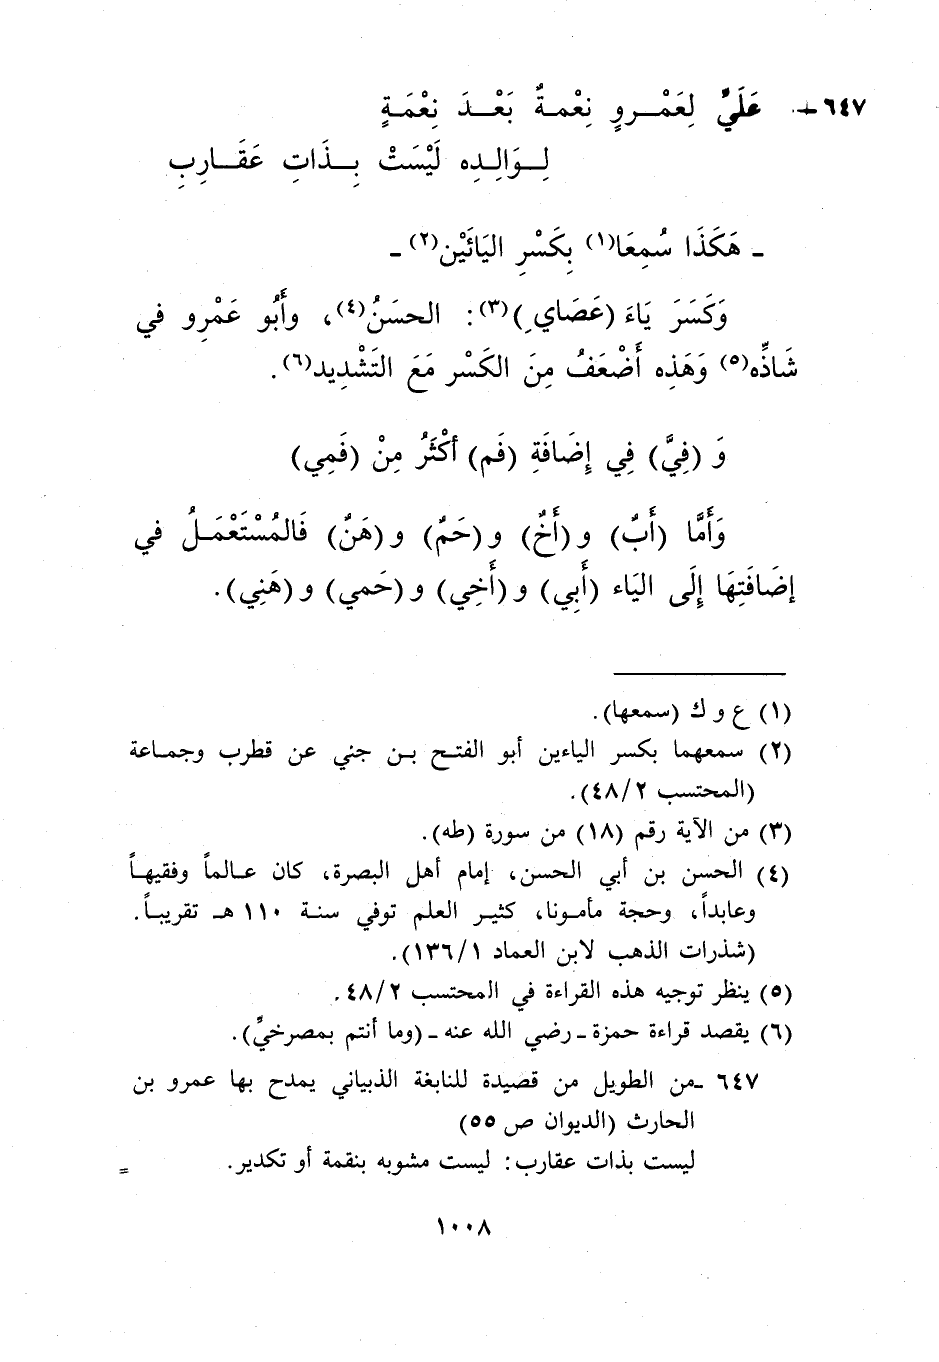 ٦٤٧ - عَلَيِّ لِعَمْـــرٍو نِعْمـةٌ بَعْـــدَ نِعْمَـةٍ
لِــوَالِـدِه لَيْسَتْ بِــذَاتِ عَقَــارِبِ
ـ هَكَذَا سُمِعَا(١) بِكَسْرِ اليَائَيْن(٢) ـ
وَكَسَرَ يَاءَ (عَصَايِ)(٣): الحسَنُ(٤)، وأَبُو عَمْرٍو في
شَاذِّه(٥) وَهَذِه أَضْعَفُ مِنَ الكَسْر مَعَ التَشْدِيد(٦).
وَ (فِيَّ) فِي إِضَافَةِ (فَم) أكْثَرُ مِنْ (فَمِي)
وَأَمَّا (أَبٌ) و (أَخٌ) و (حَمٌ) و (هَنٌ) فَالمُسْتَعْمَـلُ في
إضَافَتِهَا إِلَى اليَاء (أَبِي) و (أَخِي) و (حَمي) و (هَنِي).
(١) ع و ك (سمعها).
(٢) سمعهما بكسر الياءين أبو الفتـح بـن جني عن قطرب وجمـاعة
(المحتسب ٤٨/٢).
(٣) من الآية رقم (١٨) من سورة (طه).
(٤) الحسن بن أبي الحسن، إمام أهل البصرة، كان عـالمـاً وفقيهـاً
وعابداً، وحجة مأمـونا، كثيـر العلم توفي سنـة ١١٠ هـ تقريبـاً.
(شذرات الذهب لابن العماد ١٣٦/١).
(٥) ينظر توجيه هذه القراءة في المحتسب ٤٨/٢.
(٦) يقصد قراءة حمزة ـ رضي الله عنه ـ (وما أنتم بمصرخيِّ).
٦٤٧ ـ من الطويل من قصيدة للنابغة الذبياني يمدح بها عمرو بن
الحارث (الديوان ص ٥٥)
ليست بذات عقارب: ليست مشوبه بنقمة أو تكدير. =
١٠٠٨